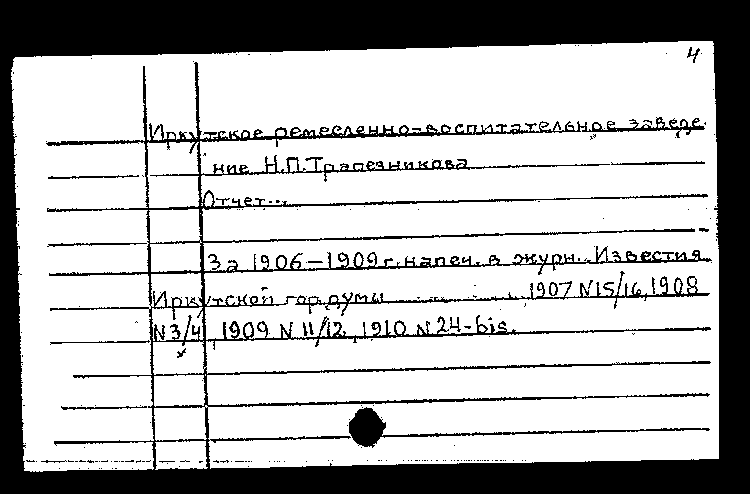 4
Иркутское ремесленно-воспитательное заведе
ние Н.П.Трапезникова
Отчет...
За 1906-1909 г. напеч. в журн. Известия
Иркутской гор.думы 1907 N15/16, 1908
N3/4, 1909 N 11/12, 1910 N 24-bis.